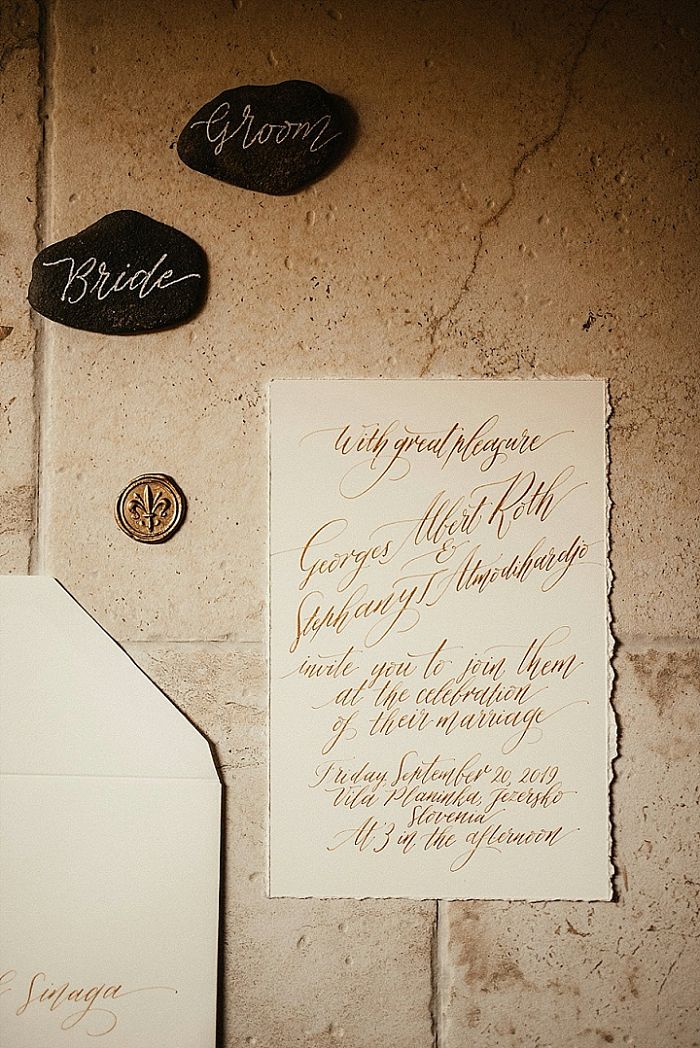 Groom
Bride
With great pleasure
Georges Albert Roth
&
Stephany T Atmodihardjo
invite you to join them
at the celebration
of their marriage
Friday, September 20, 2019
Vila Planinka, Jezersko
Slovenia
At 3 in the afternoon
Sinaga